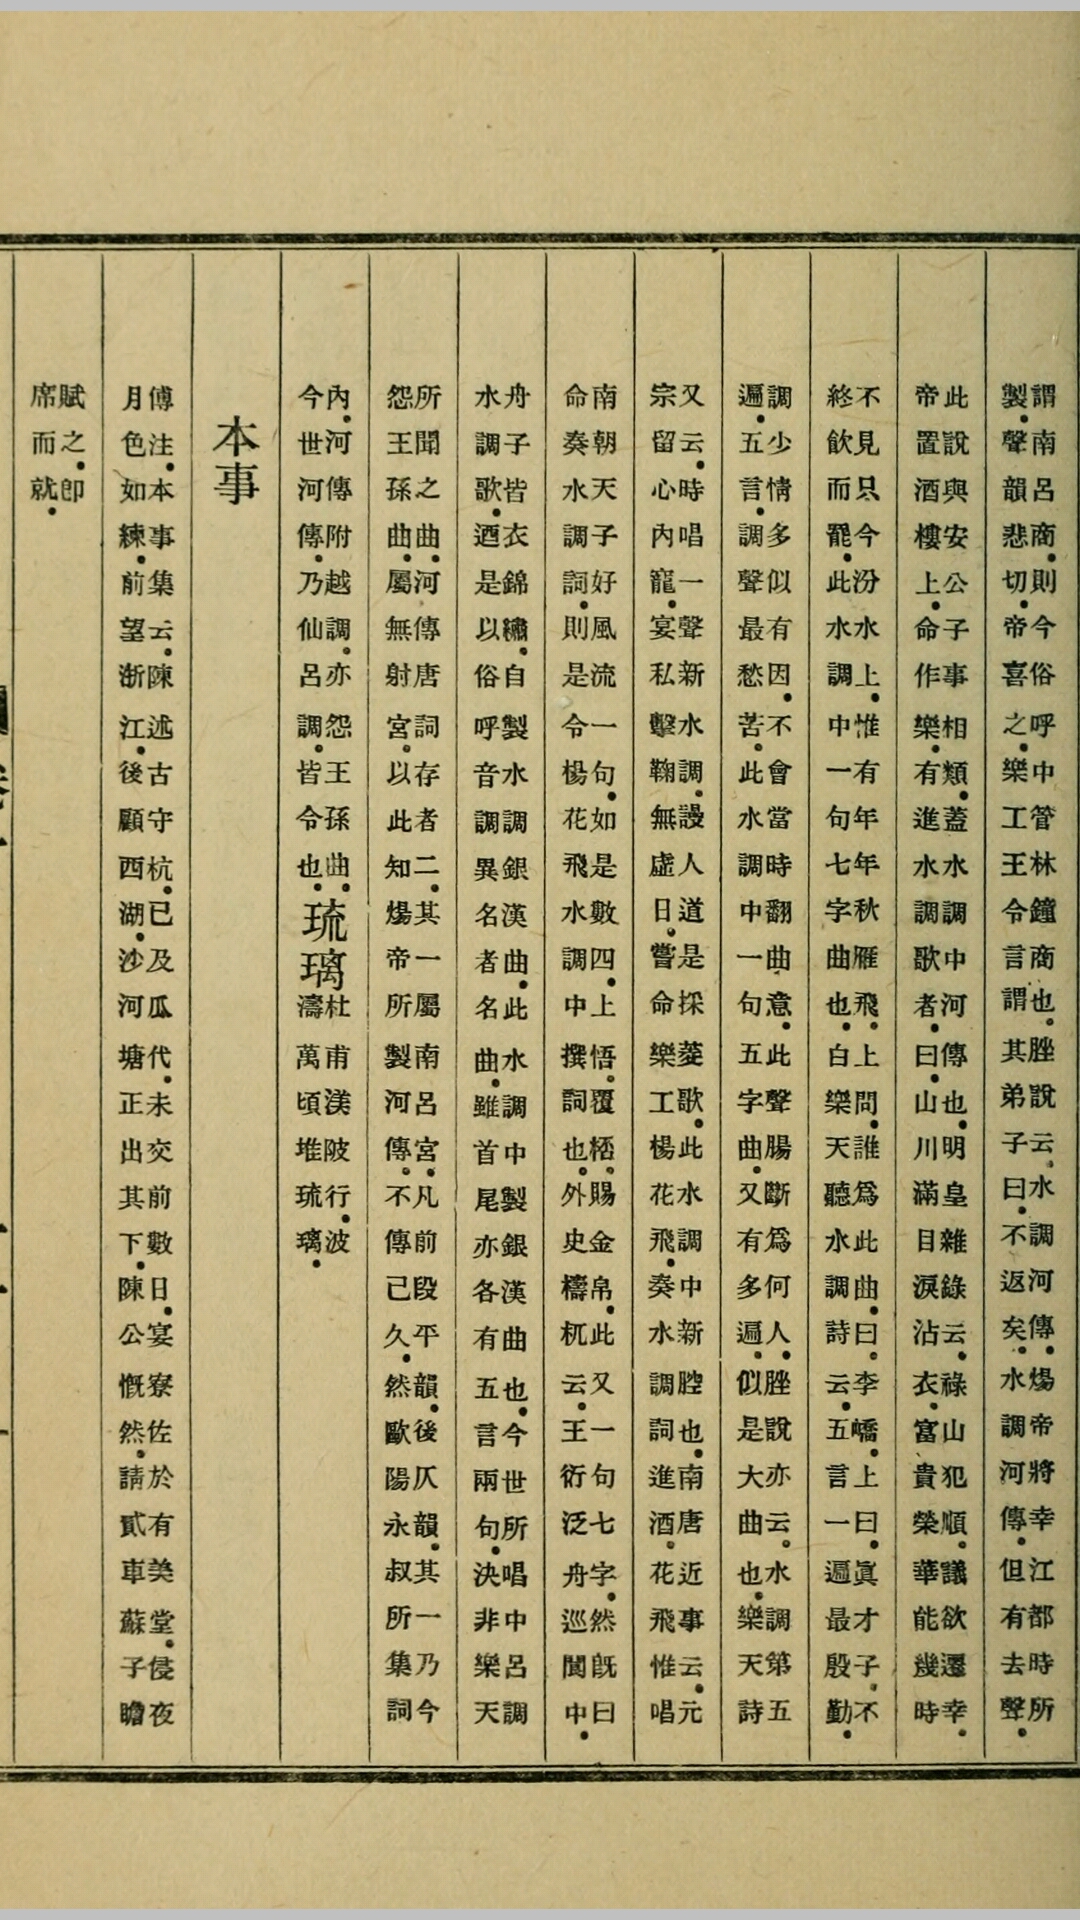 謂南呂商。則今俗呼中管林鐘商也。脞說云。水調河傳。煬帝將幸江都時所
製。聲韻悲切。帝喜之。樂工王令言謂其弟子曰。不返矣。水調河傳。但有去聲。
此說與安公子事相類。蓋水調中河傳也。明皇雜錄云。祿山犯順。議欲遷幸。
帝置酒樓上。命作樂。有進水調歌者。曰。山川滿目淚沾衣。富貴榮華能幾時
不見只今汾水上。惟有年年秋雁飛。上問。誰爲此曲。曰。李嶠。上曰。眞才子。不
終飲而罷。此水調中一句七字曲也。白樂天聽水調詩云。五言一遍最殷勤。
調少情多似有因。不會當時翻曲意。此聲腸斷爲何人。脞說亦云。水調第五
遍。五言。調聲最愁苦。此水調中一句五字曲。又有多遍。似是大曲也。樂天詩
又云。時唱一聲新水調。謾人道是採菱歌。此水調中新腔也。南唐近事云。元
宗留心內寵。宴私擊鞠無虛日。嘗命樂工楊花飛。奏水調詞進酒。花飛惟唱
南朝天子好風流一句。如是數四。上悟。覆桮。賜金帛。此又一句七字。然既曰
命奏水調詞。則是令楊花飛水調中撰詞也。外史檮杌云。王衍泛舟巡閬中。
舟子皆衣錦繡。自製水調銀漢曲。此水調中製銀漢曲也。今世所唱中呂調
水調歌。迺是以俗呼音調異名者名曲。雖首尾亦各有五言兩句。決非樂天
所聞之曲。河傳唐詞存者二。其一屬南呂宮。凡前段平韻。後仄韻。其一乃今
怨王孫曲。屬無射宮。以此知煬帝所製河傳。不傳已久。然歐陽永叔所集詞
內。河傳附越調。亦怨王孫曲。
今世河傳。乃仙呂調。皆令也。
琉璃
杜甫渼陂行。波
濤萬頃堆琉璃。
本事
傅注。本事集云。陳述古守杭。已及瓜代。未交前數日。宴寮佐於有美堂。侵夜
月色如練。前望浙江。後顧西湖。沙河塘正出其下。陳公慨然。請貳車蘇子瞻
賦之。卽
席而就。